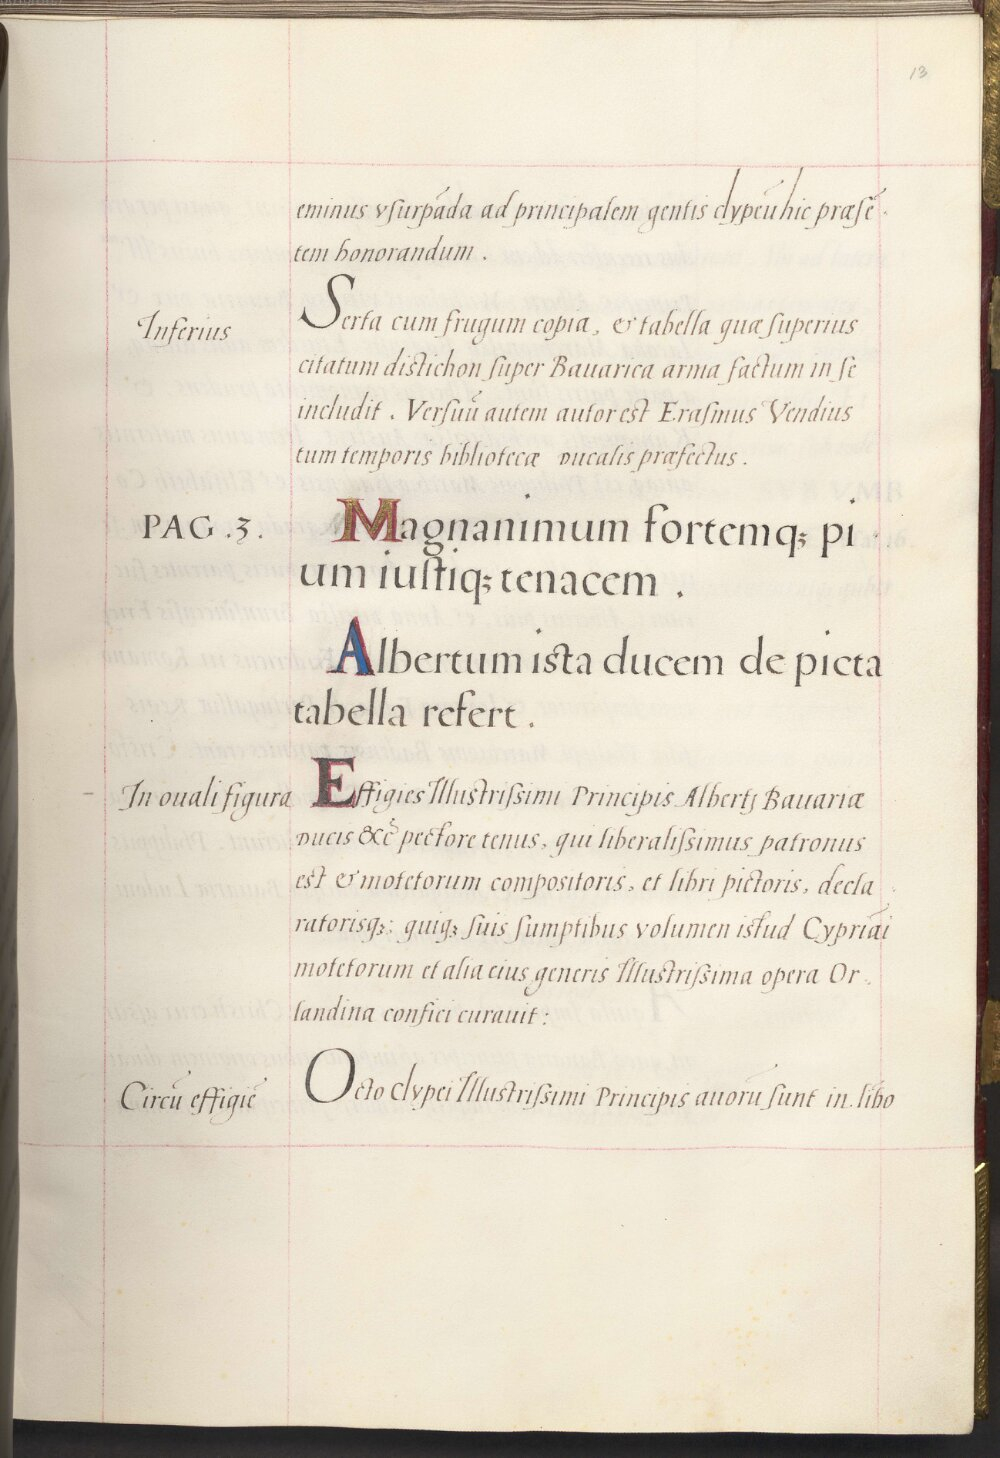 13
eminus vsurpãda ad principalem gentis clypeũ hic præsẽ
tem honorandum.
Inferius
Serta cum frugum copia, & tabella quæ superius
citatum distichon super Bauarica arma factum in se
includit. Versuũ autem autor est Erasmus Vendius
tum temporis bibliotecæ Ducalis præfectus.
PAG. 3.
Magnanimum fortemq; pi
um iustiq; tenacem.
Albertum ista ducem de picta
tabella refert.
In ouali figura
Effigies Illustrissimi Principis Albertj Bauariæ
Ducis &c̃ pectore tenus, qui liberalissimus patronus
est & motetorum compositoris, et libri pictoris, decla
ratorisq;: quiq; suis sumptibus volumen istud Cypriãi
motetorum et alia eius generis Illustrissima opera Or
landina confici curauit:
Circũ effigiẽ
Octo clypei Illustrissimi Principis auorũ sunt in lĩbo